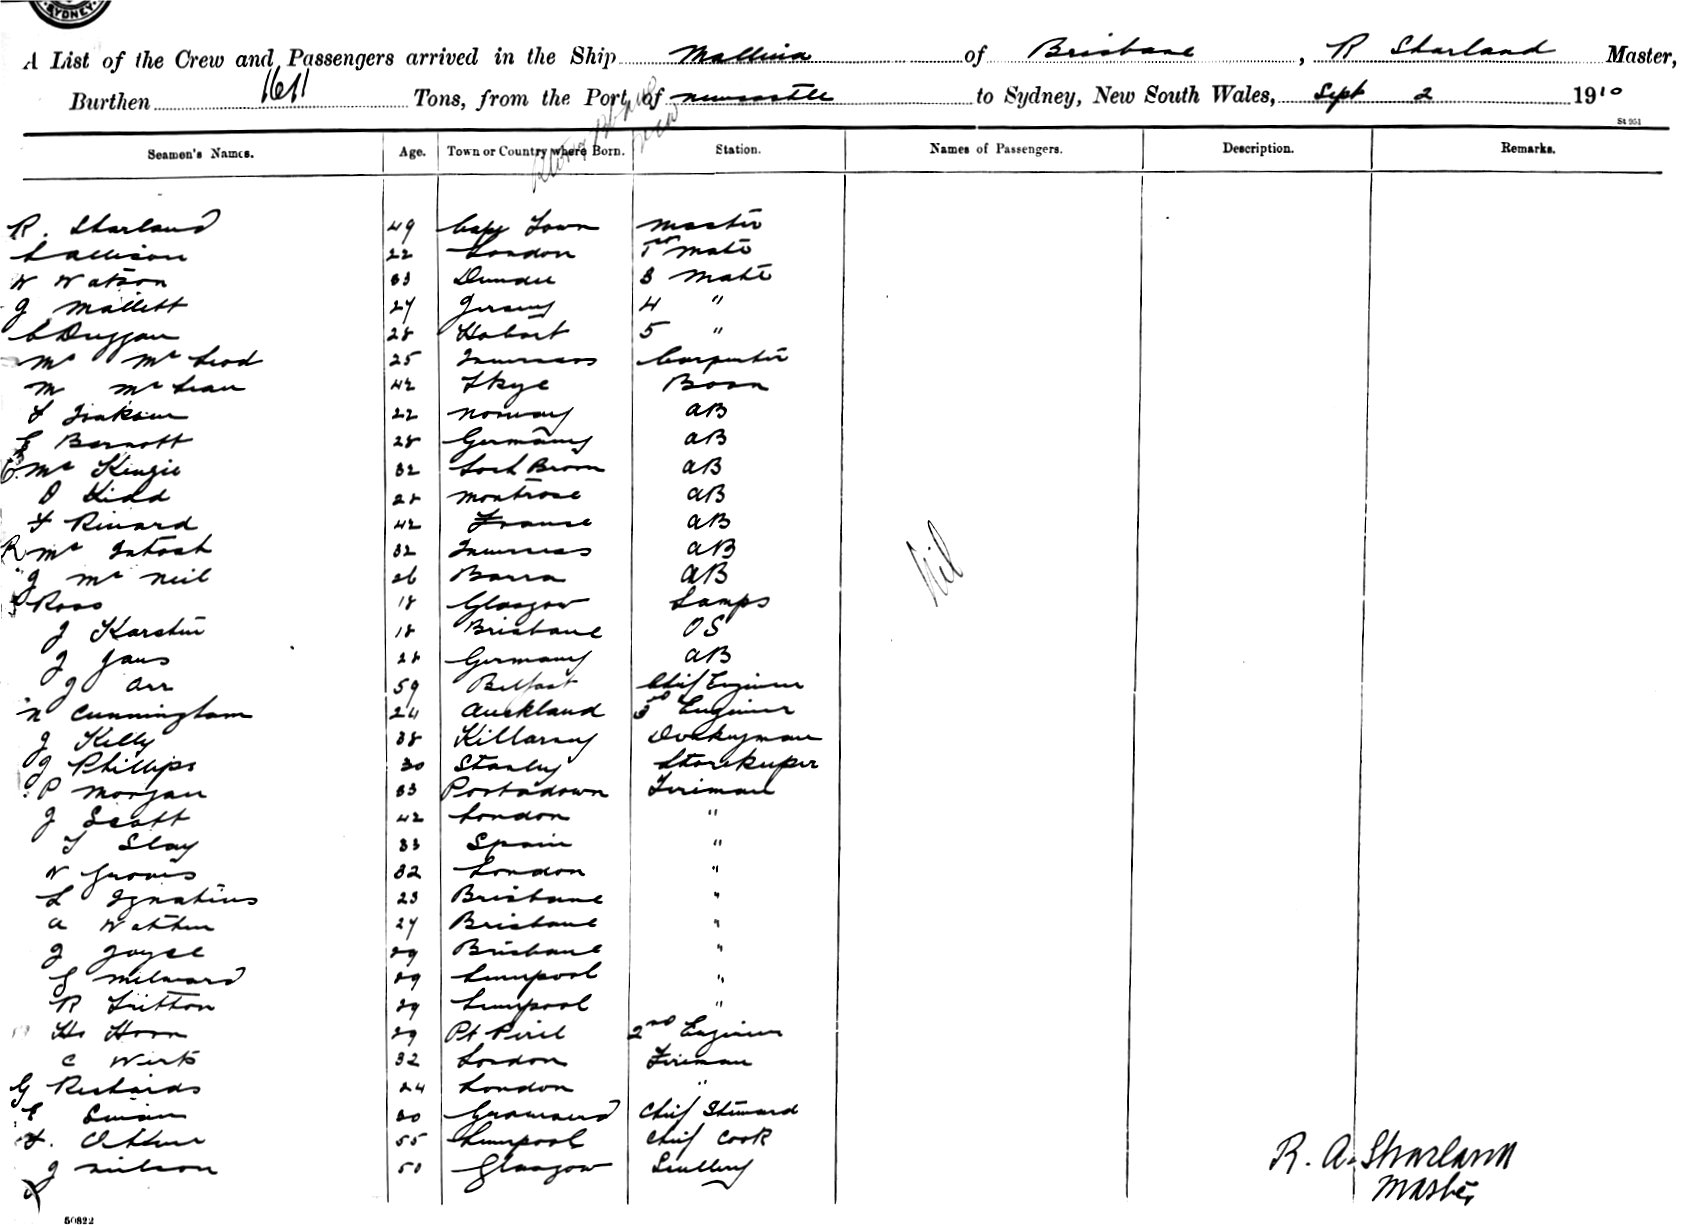 SYDNEY
A List of the Crew and Passengers arrived in the Ship Mallina of Brisbane, R Sharland Master,
Burthen 1611 Tons, from the Port of Newcastle to Sydney, New South Wales, Sept 2 1910
St 951
Seamen's Names. Age. Town or Country where Born. Station. Names of Passengers. Description. Remarks.
R. Sharland 49 Cape Town Master
C Allison 22 London 1st Mate
W Watson 33 Dundee 3 Mate
J Mallett 27 Jersey 4 "
C Duggan 28 Hobart 5 "
Mc McLeod 25 Inverness Carpenter
M McLean 42 Skye Bosn
F Isaksen 22 Norway AB
Barnott 28 Germany AB
McKenzie 32 Loch Broom AB
D Kidd 28 Montrose AB
F Rivard 42 France AB
R McIntosh 32 Inverness AB
J McNeil 26 Barra AB
Ross 18 Glasgow Lamps
J Karsten 18 Brisbane OS
J Jans 28 Germany AB
J Orr 59 Belfast Chief Engineer
N Cunningham 24 Auckland 3rd Engineer
J Kelly 38 Killarney Donkeyman
J Phillips 30 Stanley Storekeeper
P Morgan 33 Portadown Fireman
J Scott 42 London "
T Slay 33 Spain "
W Groves 32 London "
L Ignatius 23 Brisbane "
A Watten 27 Brisbane "
J Joyce 29 Brisbane "
G Milward 29 Liverpool "
R Fritton 29 Liverpool "
Hs Horn 29 Pt Pirie 2nd Engineer
C Werts 32 London Fireman
G Richards 24 London "
E Swain 30 Gravesend Chief Steward
F. Arthur 55 Liverpool Chief Cook
J Neilson 50 Glasgow Scullery
Nil
R. A. Sharland
Master
50822